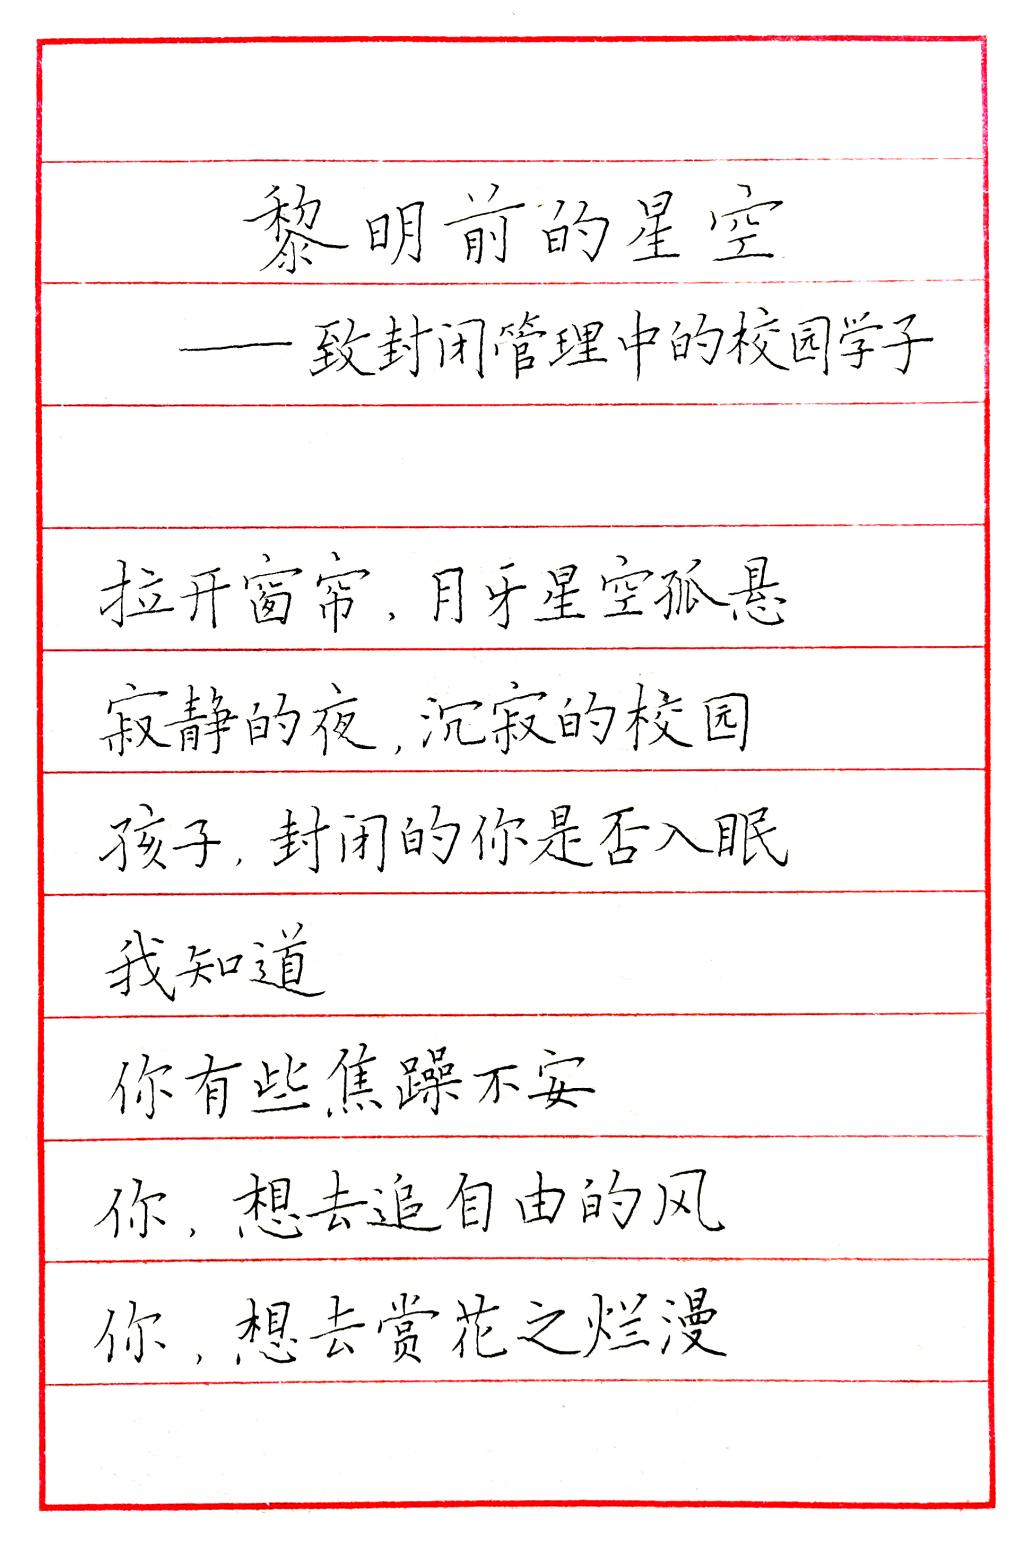 黎明前的星空
——致封闭管理中的校园学子
拉开窗帘，月牙星空孤悬
寂静的夜，沉寂的校园
孩子，封闭的你是否入眠
我知道
你有些焦躁不安
你，想去追自由的风
你，想去赏花之烂漫